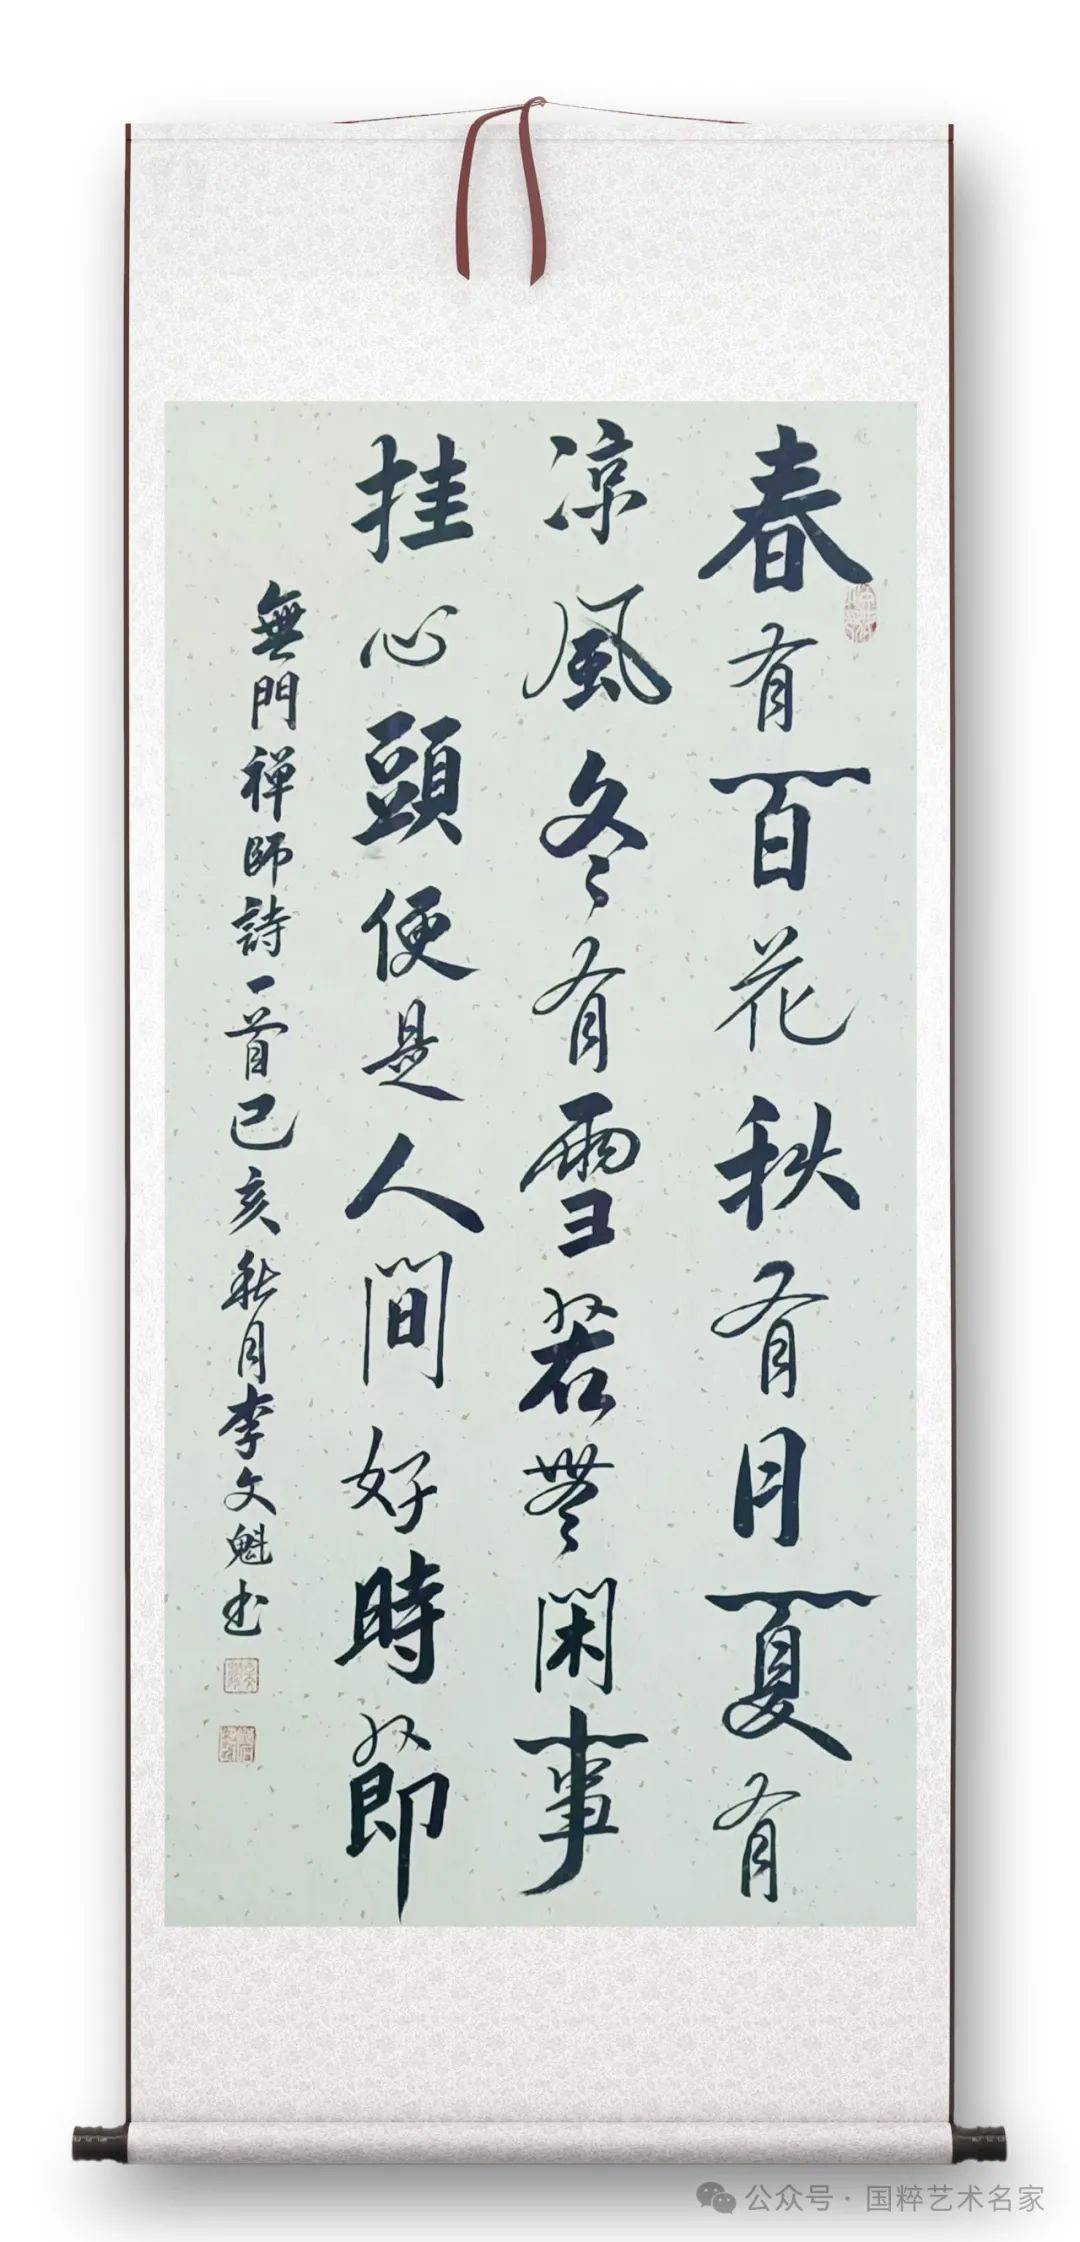 春有百花秋有月夏有
凉風冬有雪若無閑事
挂心頭便是人間好時節
無門禅師詩一首己亥秋月李文魁书
公众号·国粹艺术名家